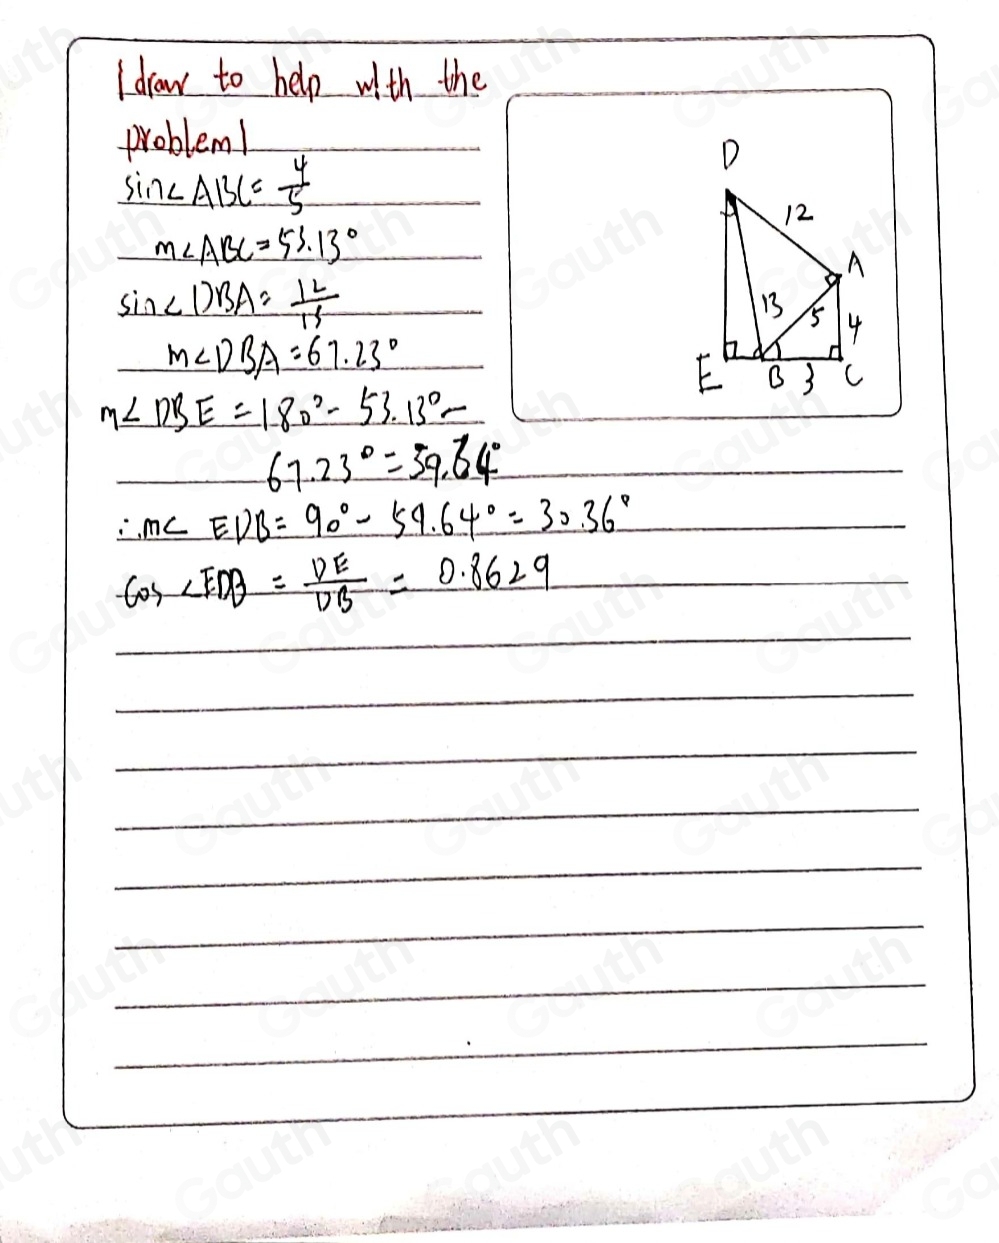 I draw to help with the
problem!
sin∠ABC = 4/5
m∠ABC = 53.13°
sin∠DBA = 12/13
m∠DBA = 67.23°
m∠DBE = 180° - 53.13° -
67.23° = 59.64°
∴ m∠ EDB = 90° - 59.64° = 30.36°
cos ∠EDB = DE/DB = 0.8629
D
12
A
13
5
4
E
B
3
C
Gauth